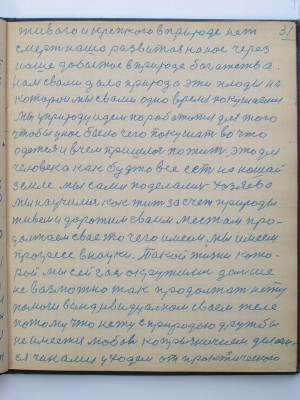 31
живаго и крепкого в природе нет
смерт наша развитая на ное через
наше добытое в природе богатства.
нам с вами дала природа эти плоды на
которои мы с вами одно время покушаеми
мы у природу идем поработат для того
чтобы у ное было чего покушат во что
одется и в чем пришлос пожит. Это для
человека как будто все ест на нашай
земле мы сами поделалис хозяева
мы научилис как жит за счет природы
живем и дорожим сваем местам про-
должаем свае то чего имеем, мы имеем
прогресс в науки. Такой жизни кото-
рой мы сейчас окружили дальше
не возможно так продолжат нету
помочи в индивидуалном сваем теле
потому что нету с природою дружбы
не имеется любов
ся чинами уходем от практического